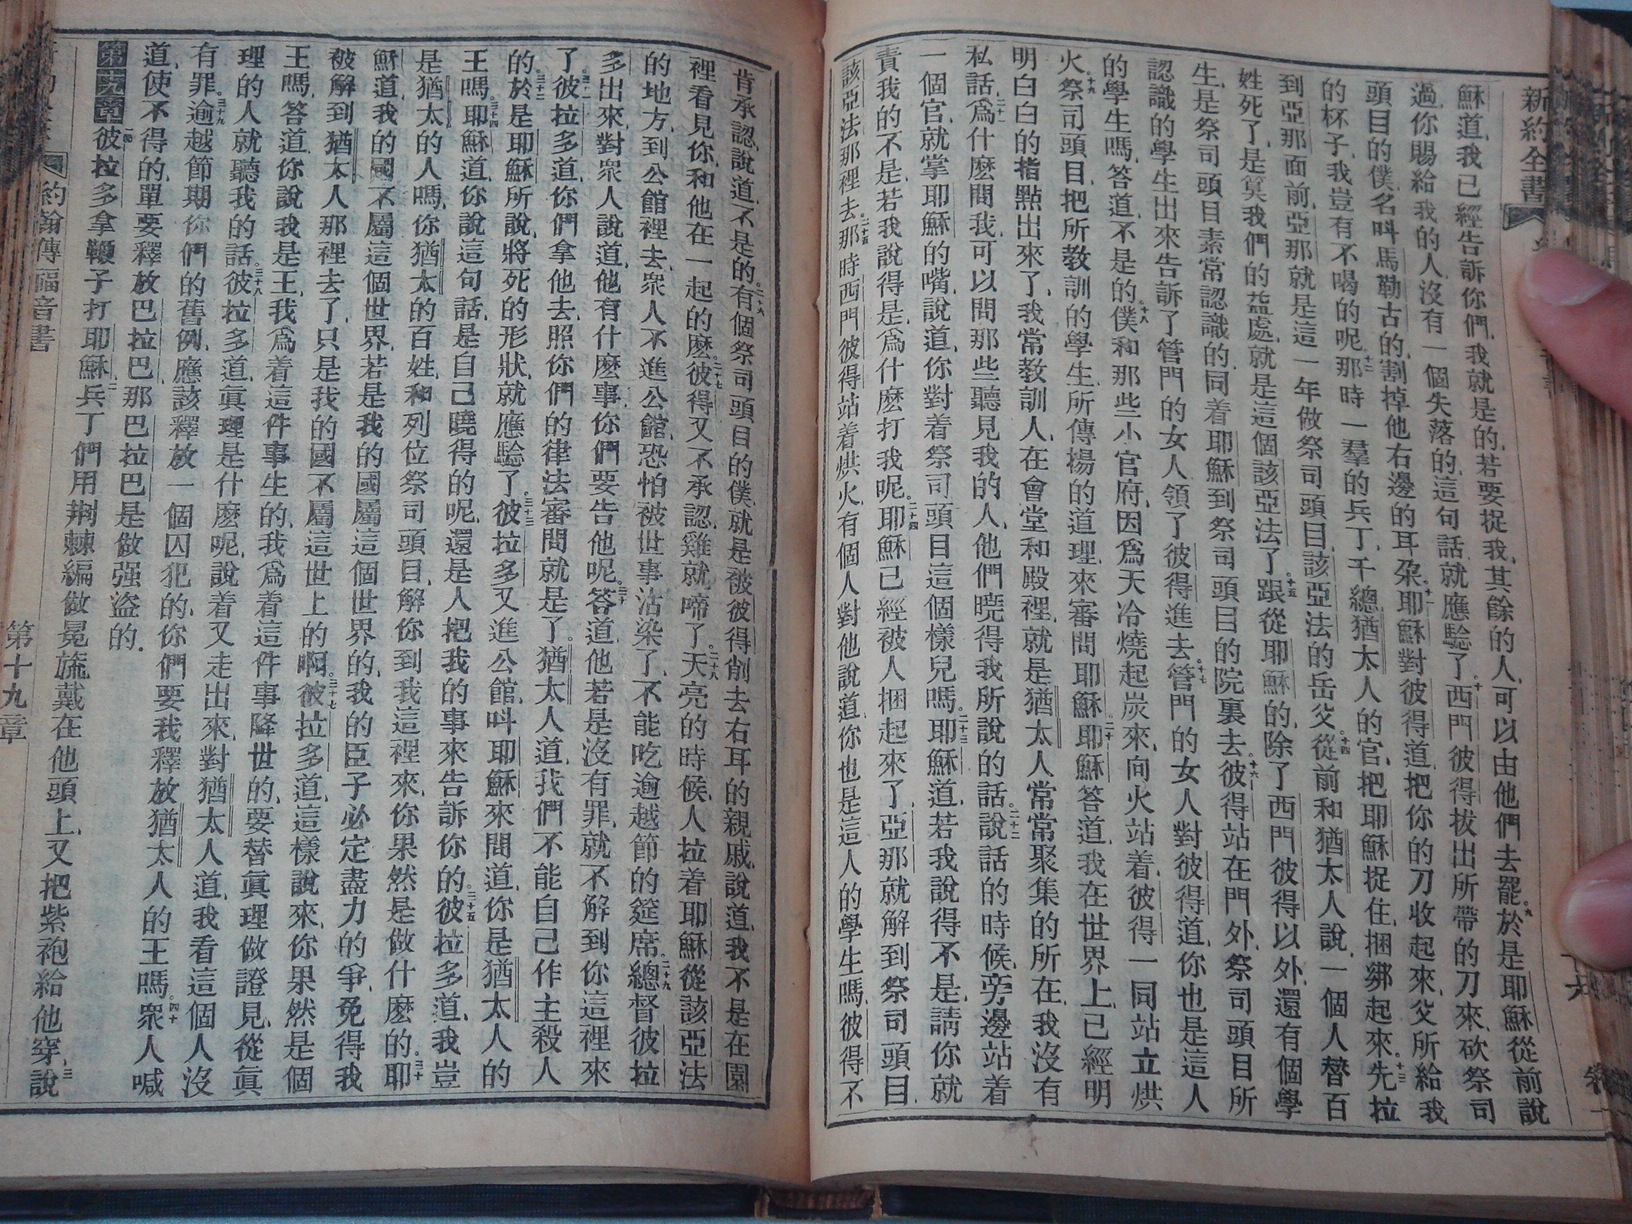 新約全書
穌道、我已經告訴你們、我就是的、若要捉我、其餘的人、可以由他們去罷。九於是耶穌從前說
過、你賜給我的人、沒有一個失落的、這句話、就應驗了。十西門彼得拔出所帶的刀來、砍祭司
頭目的僕、名呌馬勒古的、割掉他右邊的耳朶。十一耶穌對彼得道、把你的刀收起來、父所給我
的杯子、我豈有不喝的呢。十二那時一羣的兵丁、千總、猶太人的官、把耶穌捉住、捆綁起來。十三先拉
到亞那面前、亞那就是這一年做祭司頭目、該亞法的岳父。十四從前和猶太人說、一個人替百
姓死了、是莫我們的益處、就是這個該亞法了。十五跟從耶穌的、除了西門彼得以外、還有個學
生、是祭司頭目素常認識的、同着耶穌到祭司頭目的院裏去。十六彼得站在門外、祭司頭目所
認識的學生出來、告訴了管門的女人、領了彼得進去。十七管門的女人對彼得道、你也是這人
的學生嗎、答道、不是的。十八僕和那些小官府、因爲天冷燒起炭來、向火站着、彼得一同站立烘
火。十九祭司頭目、把所敎訓的學生、所傳揚的道理、來審問耶穌。二十耶穌答道、我在世界上、已經明
明白白的指點出來了、我常敎訓人、在會堂和殿裡、就是猶太人常常聚集的所在、我沒有
私話。二十一爲什麼問我、可以問那些聽見我的人、他們曉得我所說的話。二十二說話的時候、旁邊站着
一個官、就掌耶穌的嘴、說道、你對着祭司頭目這個樣兒嗎。二十三耶穌道、若我說得不是、請你就
責我的不是、若我說得是、爲什麼打我呢。二十四耶穌已經被人捆起來了、亞那就解到祭司頭目、
該亞法那裡去。二十五那時西門彼得站着烘火、有個人對他說道、你也是這人的學生嗎、彼得不
肯承認、說道、不是的。二十六有個祭司頭目的僕、就是被彼得削去右耳的親戚、說道、我不是在園
裡看見你、和他在一起的麽。二十七彼得又不承認、雞就啼了。二十八天亮的時候、人拉着耶穌、從該亞法
的地方、到公館裡去、衆人不進公館、恐怕被世事沾染了、不能吃逾越節的筵席。二十九總督彼拉
多出來、對衆人說道、他有什麼事、你們要告他呢。三十答道、他若是沒有罪、就不解到你這裡來
了。三十一彼拉多道、你們拿他去、照你們的律法審問就是了。猶太人道、我們不能自己作主殺人
的。三十二於是耶穌所說、將死的形狀、就應驗了。三十三彼拉多又進公館、呌耶穌來問道、你是猶太人的
王嗎。三十四耶穌道、你說這句話、是自己曉得的呢、還是人把我的事來告訴你的。三十五彼拉多道、我豈
是猶太的人嗎、你猶太的百姓、和列位祭司頭目、解你到我這裡來、你果然是做什麼的。三十六耶
穌道、我的國不屬這個世界、若是我的國屬這個世界的、我的臣子必定盡力的爭、免得我
被解到猶太人那裡去了、只是我的國不屬這世上的啊。三十七彼拉多道、這樣說來、你果然是個
王嗎、答道、你說我是王、我爲着這件事生的、我爲着這件事降世的、要替眞理做證見、從眞
理的人就聽我的話。三十八彼拉多道、眞理是什麼呢、說着又走出來、對猶太人道、我看這個人沒
有罪。三十九逾越節期你們的舊例、應該釋放一個囚犯的、你們要我釋放猶太人的王嗎。四十衆人喊
道、使不得的、單要釋放巴拉巴、那巴拉巴是做强盜的、
第十九章 彼拉多拿鞭子打耶穌。二兵丁們用荆棘編做冕旒、戴在他頭上、又把紫袍給他穿。三說
約翰傳福音書
第十九章